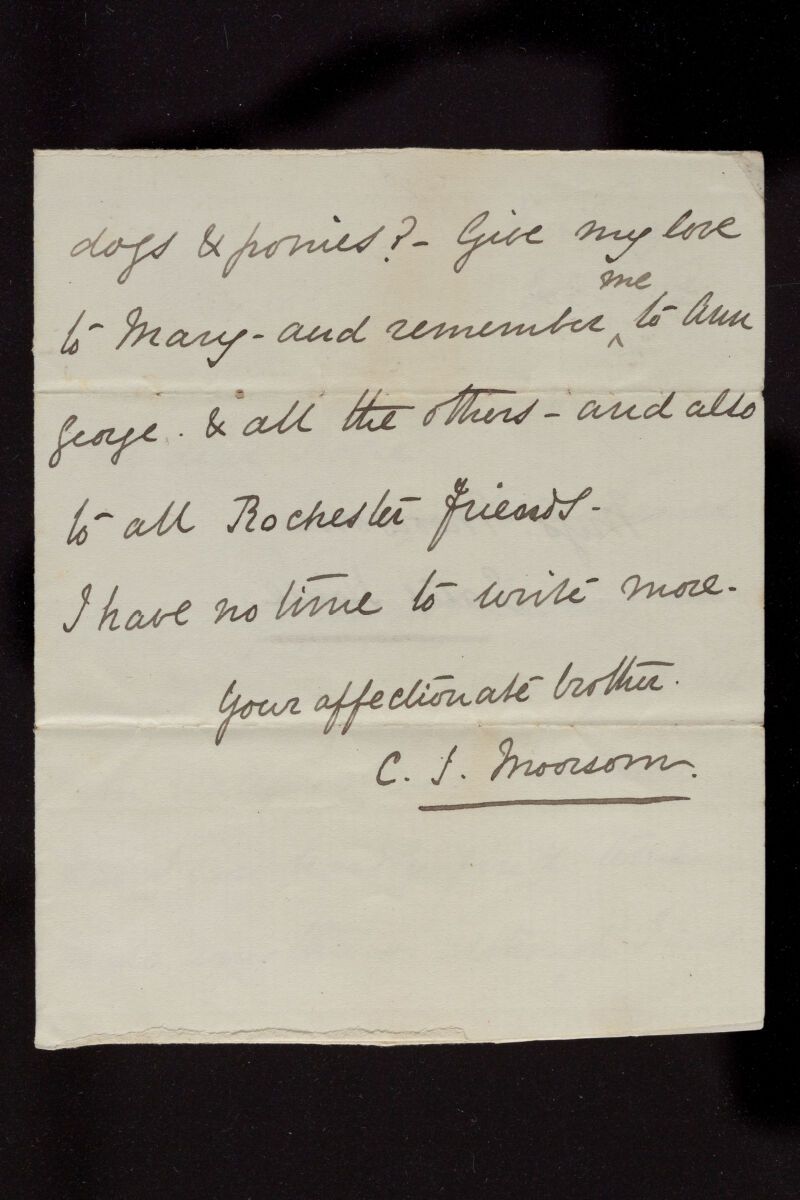 dogs & ponies? - Give my love
to Mary - and remember ^me to Ann
George. & all the others - and also
to all Rochester friends -
I have no time to write more -
Your affectionate brother.
C. J. Moorsom.